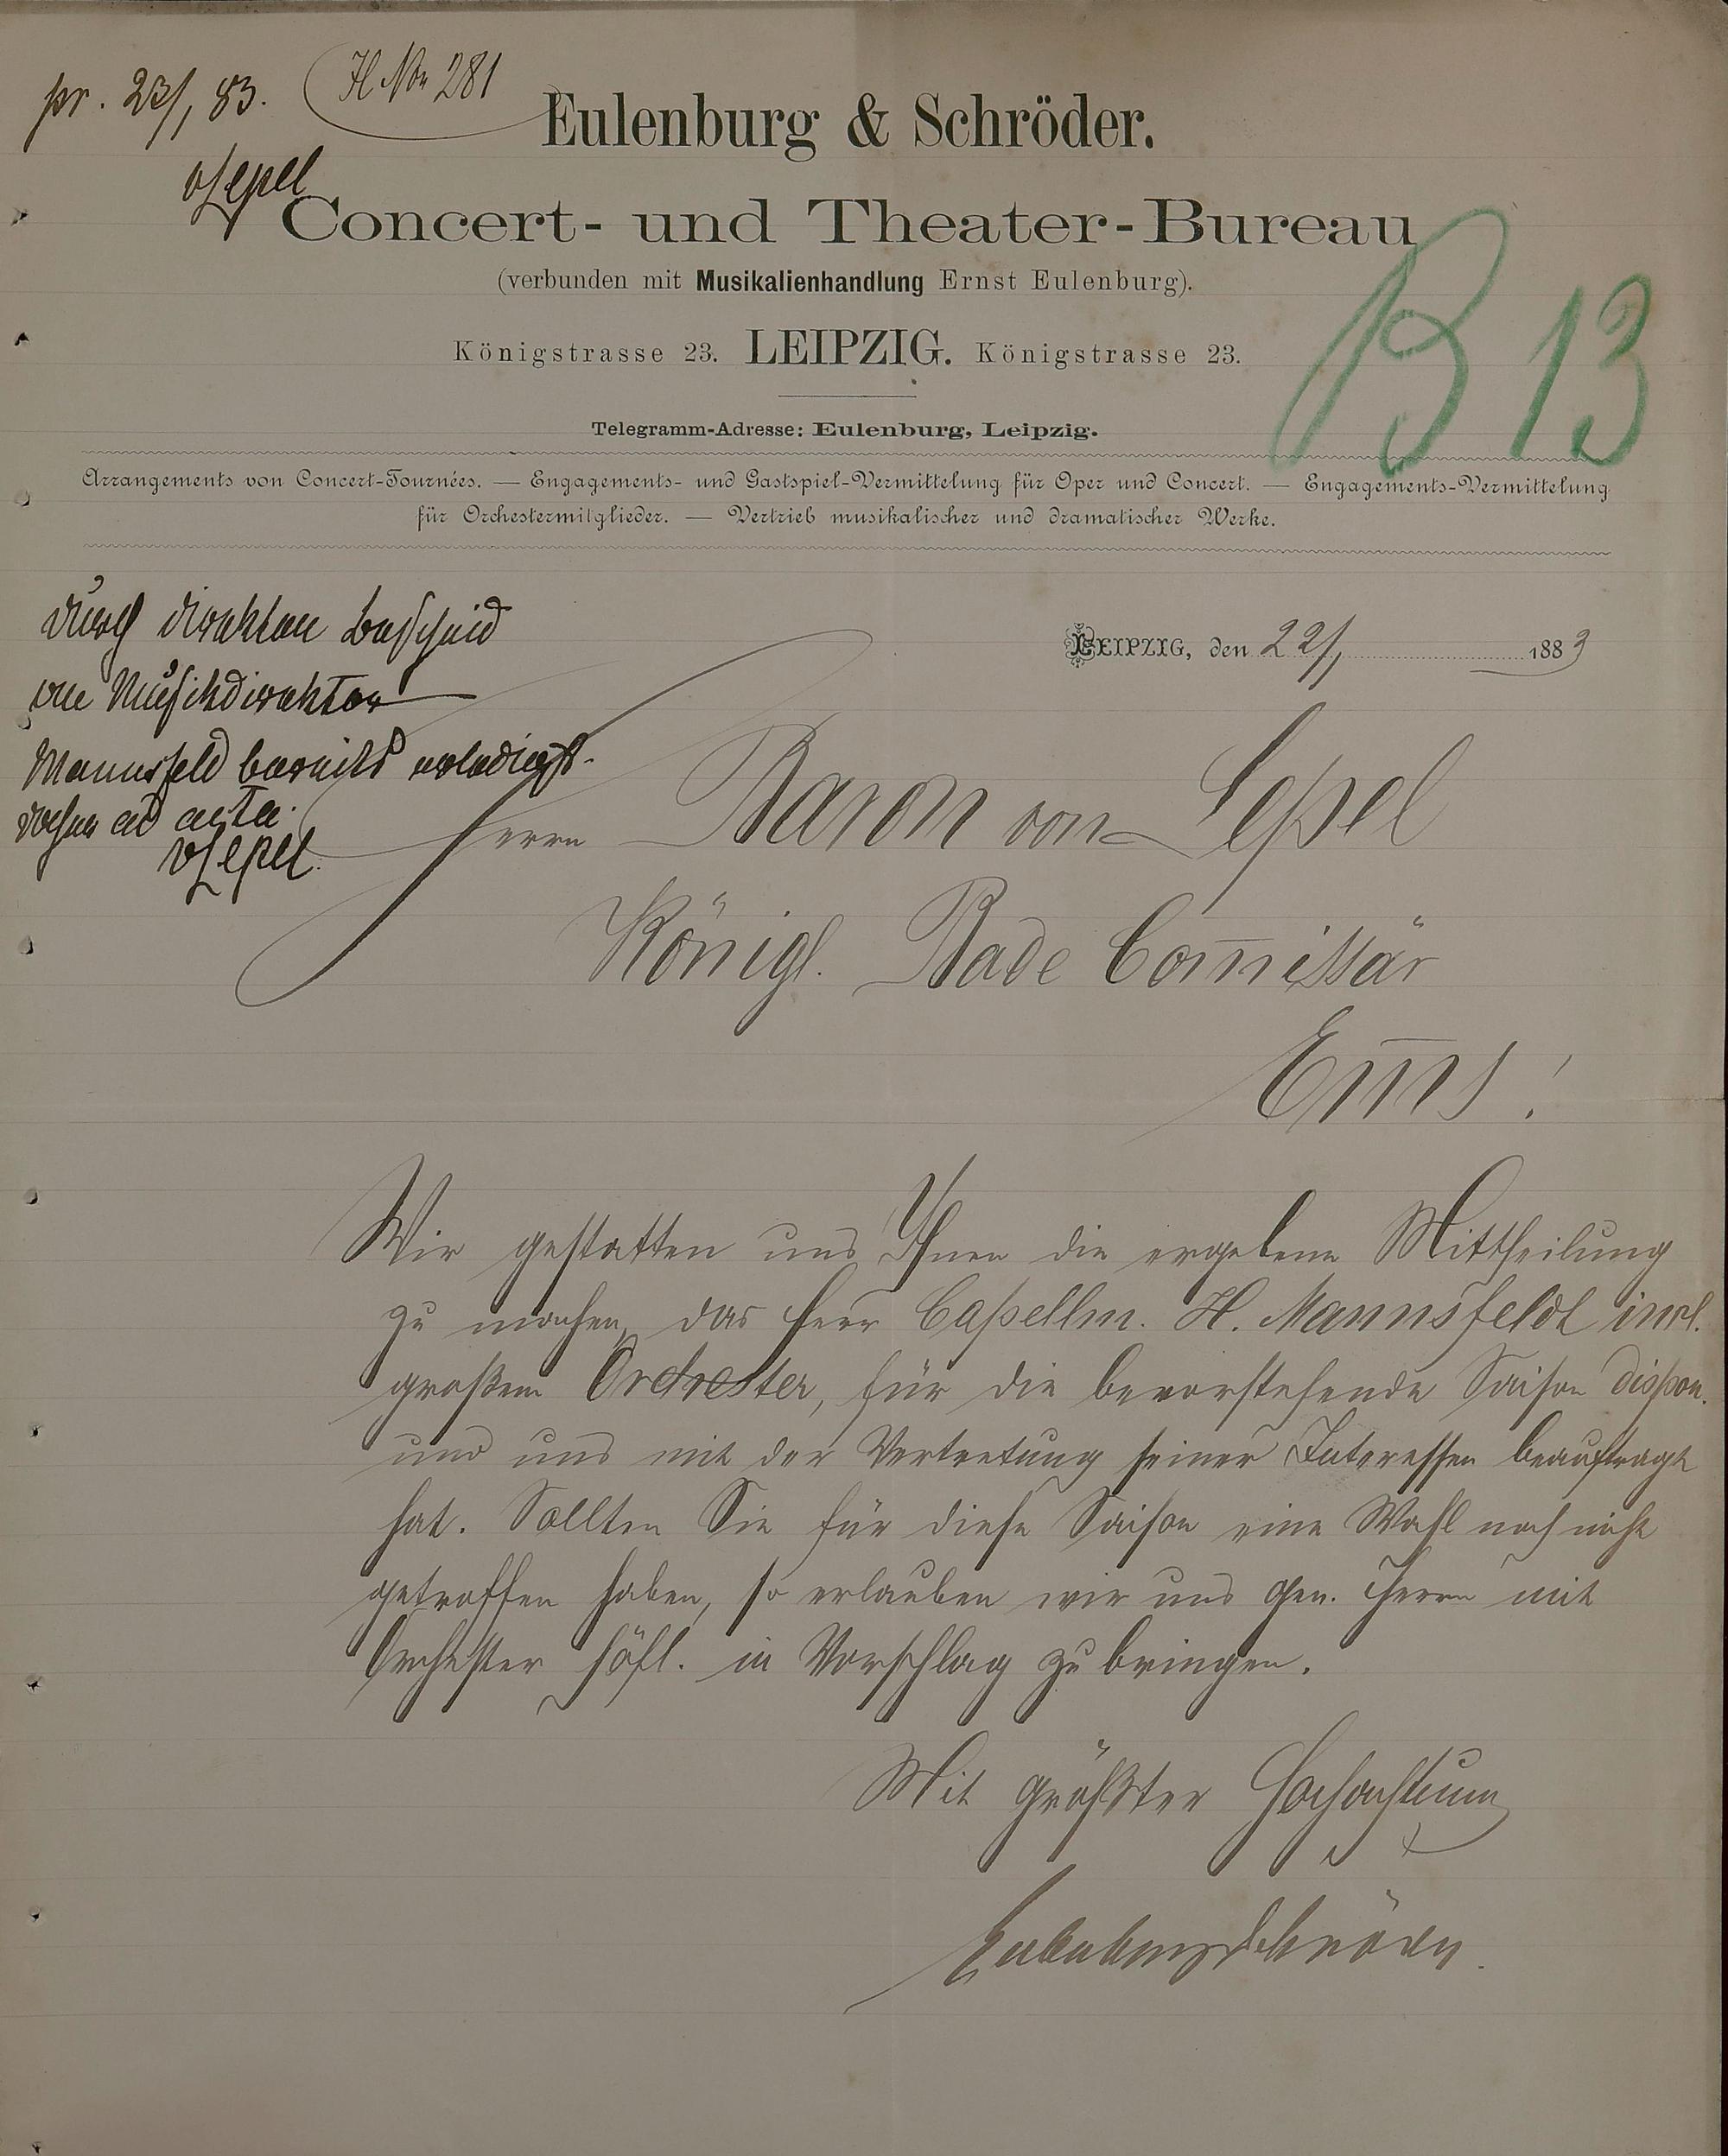 pr. 23/1 83.
H No 281
vLepel
Eulenburg & Schröder.
Concert- und Theater-Bureau
(verbunden mit Musikalienhandlung Ernst Eulenburg).
Königstrasse 23. LEIPZIG. Königstrasse 23.
Telegramm-Adresse: Eulenburg, Leipzig.
Arrangements von Concert-Tournées. — Engagements- und Gastspiel-Vermittelung für Oper und Concert. — Engagements-Vermittelung
für Orchestermitglieder. — Vertrieb musikalischer und dramatischer Werke.
B 13
LEIPZIG, den 22/1 1883
durch direkten Bescheid
Musikdirektor
Mannsfeld bereits erledigt.
daher ad acta.
vLepel
Herrn Baron von Lepel
Königl. Bade Com̄issär
Em̄s!
Wir gestatten uns Ihnen die ergebene Mittheilung
zu machen, das Herr Capellm. H. Mannsfeldt incl.
großem Orchester, für die bevorstehende Saison dispon.
und uns mit der Vertretung seiner Interessen beauftragt
hat. Sollten Sie für diese Saison eine Wahl noch nicht
getroffen haben, so erlauben wir uns gen. Herrn mit
Orchester höfl. in Vorschlag zu bringen.
Mit größter Hochachtung
Eulenburg Schröder.